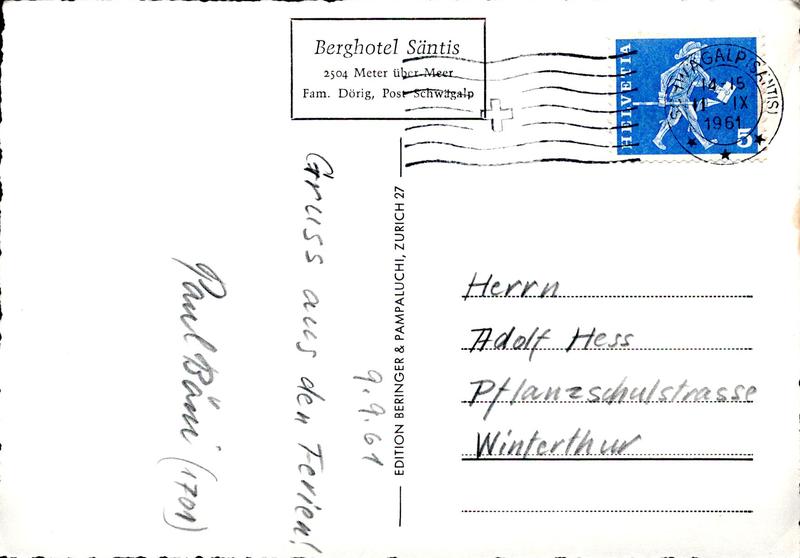 Berghotel Säntis
2504 Meter über Meer
Fam. Dörig, Post Schwägalp
HELVETIA
5
SCHWÄGALP (SÄNTIS)
14-15
11 IX
1961
9.9.61
Gruss aus den Ferien!
Paul Bäni (1701)
EDITION BERINGER & PAMPALUCHI, ZURICH 27
Herrn
Adolf Hess
Pflanzschulstrasse
Winterthur